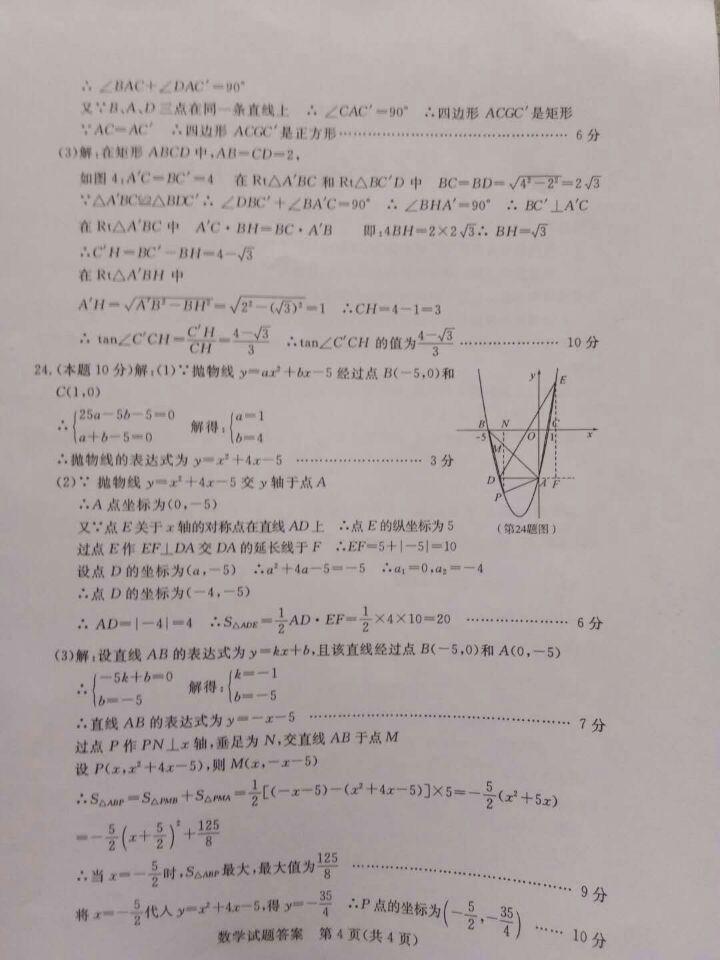 ∴ ∠BAC+∠DAC′=90°
又∵B、A、D三点在同一条直线上 ∴ ∠CAC′=90° ∴四边形 ACGC′是矩形
∵AC=AC′ ∴四边形 ACGC′是正方形……………………………… 6 分
(3)解:在矩形 ABCD 中,AB=CD=2,
如图 4:A′C=BC′=4 在 Rt△A′BC 和 Rt△BC′D 中 BC=BD=√(4²-2²)=2√3
∵△A′BC≌△BDC′∴ ∠DBC′+∠BA′C=90° ∴ ∠BHA′=90° ∴ BC′⊥A′C
在 Rt△A′BC 中 A′C·BH=BC·A′B 即:4BH=2×2√3∴ BH=√3
∴C′H=BC′-BH=4-√3
在 Rt△A′BH 中
A′H=√(A′B²-BH²)=√(2²-(√3)²)=1 ∴CH=4-1=3
∴ tan∠C′CH=C′H/CH=(4-√3)/3 ∴tan∠C′CH 的值为(4-√3)/3 ……………… 10 分
24.(本题 10 分)解:(1)∵抛物线 y=ax²+bx-5 经过点 B(-5,0)和
C(1,0)
∴{25a-5b-5=0 a+b-5=0 解得:{a=1 b=4
∴抛物线的表达式为 y=x²+4x-5 ……………… 3 分
(2)∵ 抛物线 y=x²+4x-5 交 y 轴于点 A
∴A 点坐标为(0,-5)
又∵点 E 关于 x 轴的对称点在直线 AD 上 ∴点 E 的纵坐标为 5
过点 E 作 EF⊥DA 交 DA 的延长线于 F ∴EF=5+|-5|=10
设点 D 的坐标为(a,-5) ∴a²+4a-5=-5 ∴a₁=0,a₂=-4
∴点 D 的坐标为(-4,-5)
∴ AD=|-4|=4 ∴S△ADE=1/2 AD·EF=1/2×4×10=20 ……………… 6 分
y
E
B
N
C
-5
O
1
x
M
D
A
F
P
(第24题图)
(3)解:设直线 AB 的表达式为 y=kx+b,且该直线经过点 B(-5,0)和 A(0,-5)
∴{-5k+b=0 b=-5 解得:{k=-1 b=-5
∴直线 AB 的表达式为 y=-x-5 ……………………………… 7 分
过点 P 作 PN⊥x 轴,垂足为 N,交直线 AB 于点 M
设 P(x,x²+4x-5),则 M(x,-x-5)
∴S△ABP=S△PMB+S△PMA=1/2[(-x-5)-(x²+4x-5)]×5=-5/2(x²+5x)
=-5/2(x+5/2)²+125/8
∴当 x=-5/2时,S△ABP最大,最大值为125/8 ……………………………… 9 分
将 x=-5/2代入 y=x²+4x-5,得 y=-35/4 ∴P 点的坐标为(-5/2,-35/4) …… 10 分
数学试题答案 第 4 页(共 4 页)